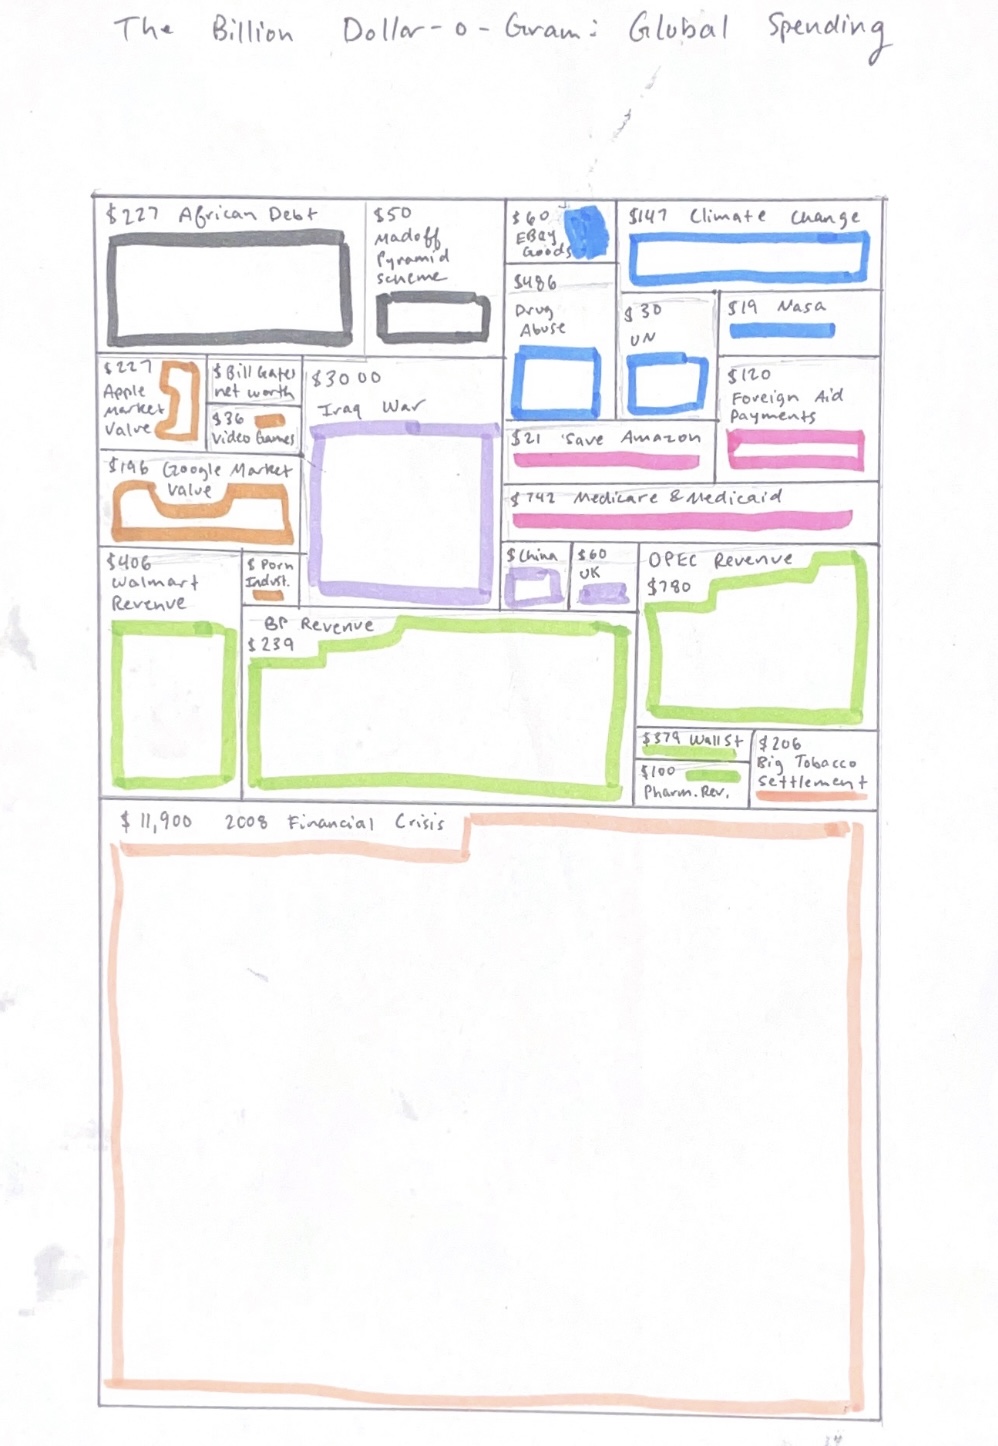 The Billion Dollar-o-Gram: Global Spending
$227 African Debt
$50
Madoff
Pyramid
scheme
$60
EBay
Goods
$147 Climate Change
$486
Drug
Abuse
$30
UN
$19 Nasa
$227
Apple
Market
Value
$ Bill Gates
net worth
$36
Video Games
$3000
Iraq War
$120
Foreign Aid
Payments
$21 'Save Amazon
$196 Google Market
Value
$742 Medicare & Medicaid
$406
Walmart
Revenue
$ Porn
Indust.
$ China
$60
UK
OPEC Revenue
$780
BP Revenue
$239
$379 Wall St
$100
Pharm. Rev.
$206
Big Tobacco
Settlement
$11,900 2008 Financial Crisis